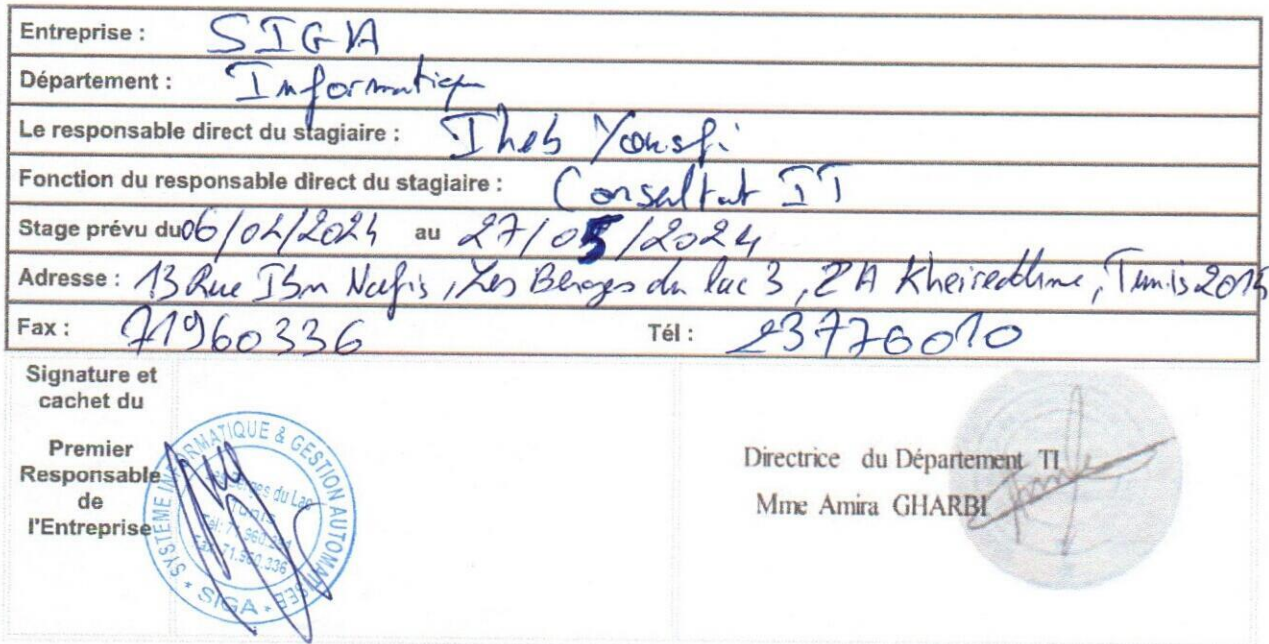 Entreprise : SIGA
Département : Informatique
Le responsable direct du stagiaire : Iheb Yousfi
Fonction du responsable direct du stagiaire : Consultant IT
Stage prévu du 06/02/2024 au 27/05/2024
Adresse : 13 Rue Ibn Nafis, Les Berges du lac 3, ZA Kheireddine, Tunis 2015
Fax : 71960336 Tél : 23776010
Signature et
cachet du
Premier
Responsable
de
l'Entreprise
SYSTÈME INFORMATIQUE & GESTION AUTOMATISÉE
Berges du Lac
Tunis
Tél: 71.960
Fax: 71.960.336
* SIGA *
Directrice du Département TI
Mme Amira GHARBI